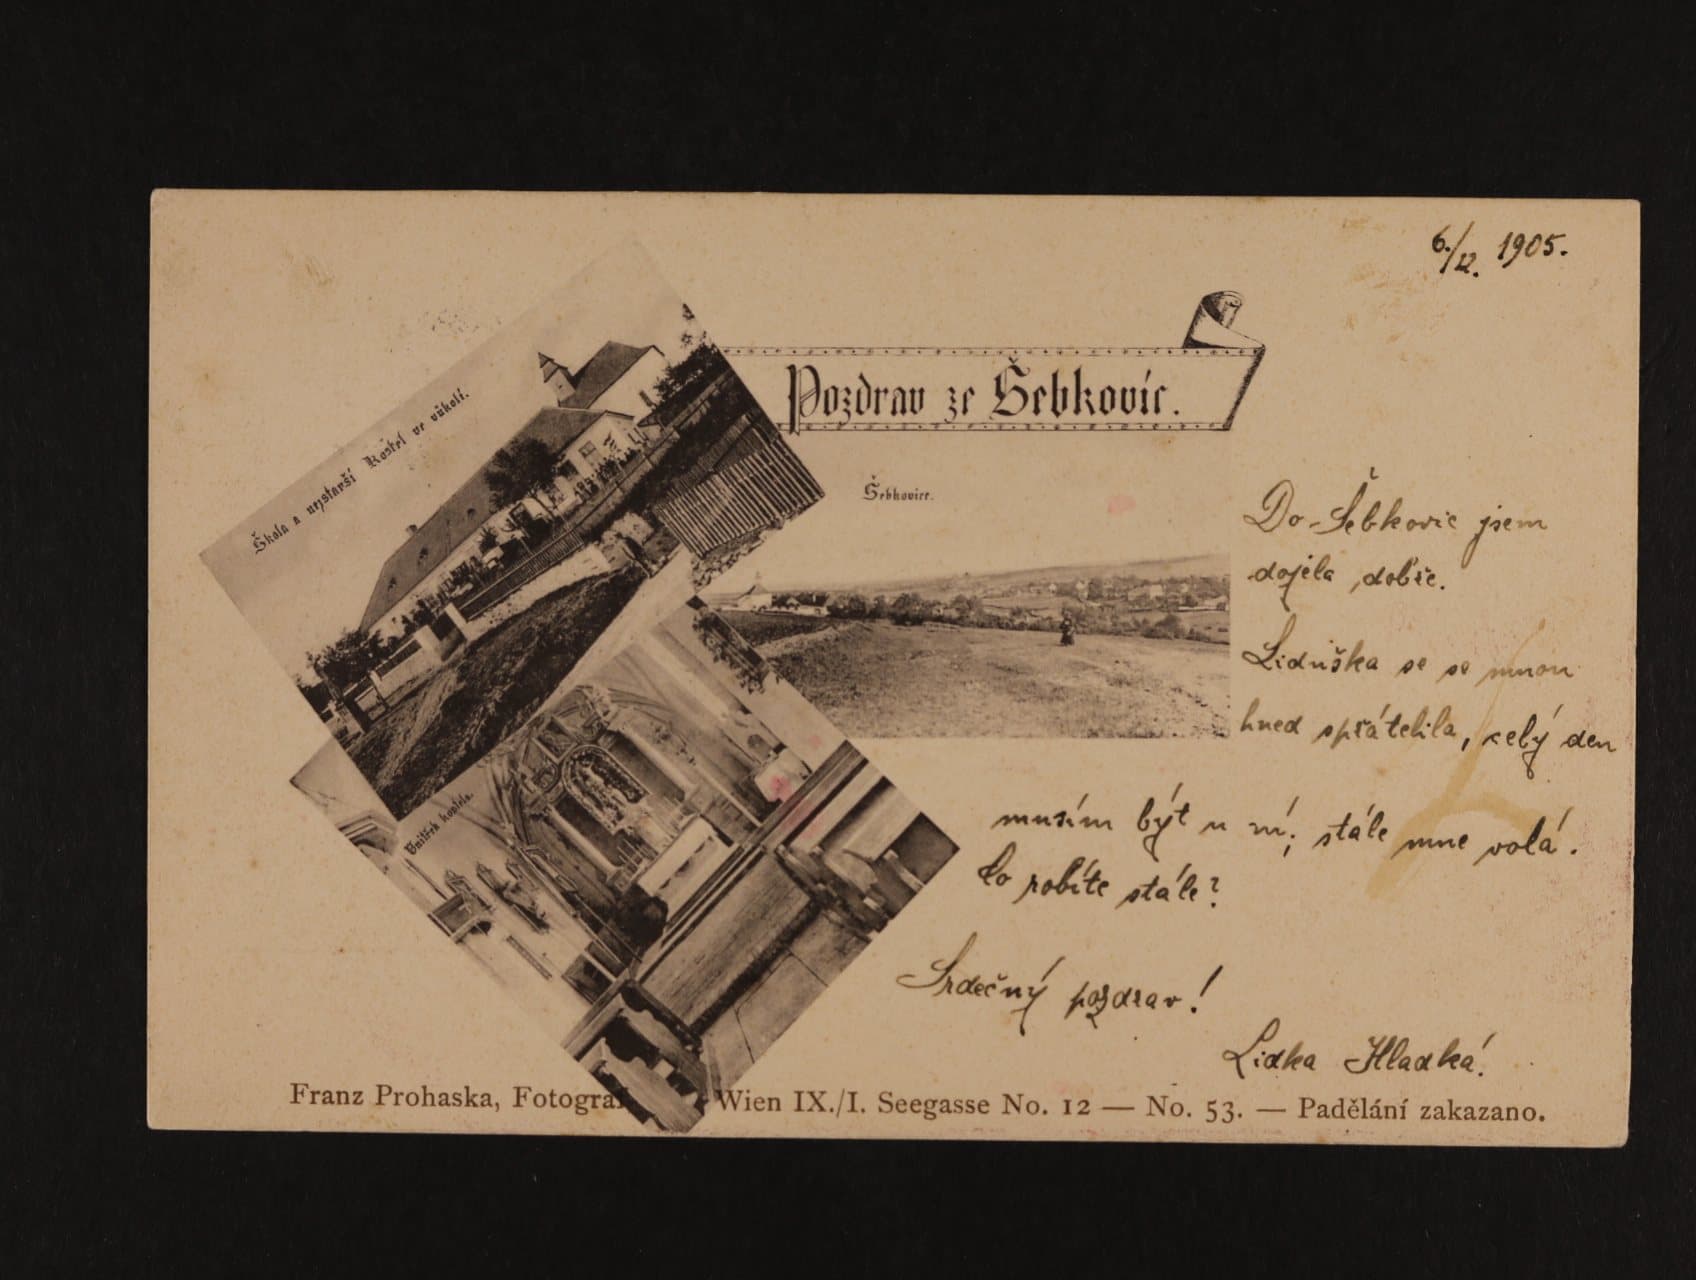 6./12. 1905.
Pozdrav ze Šebkovic.
Škola a nejstarší Kostel ve vůkolí.
Šebkovice.
Vnitřek kostela.
Do Šebkovic jsem
dojela dobře.
Liduška se se mnou
hned spřátelila, celý den
musím být u ní; stále mne volá.
Co robíte stále?
Srdečný pozdrav!
Lidka Hladká.
Franz Prohaska, Fotograf Wien IX./I. Seegasse No. 12 — No. 53. — Padělání zakazano.